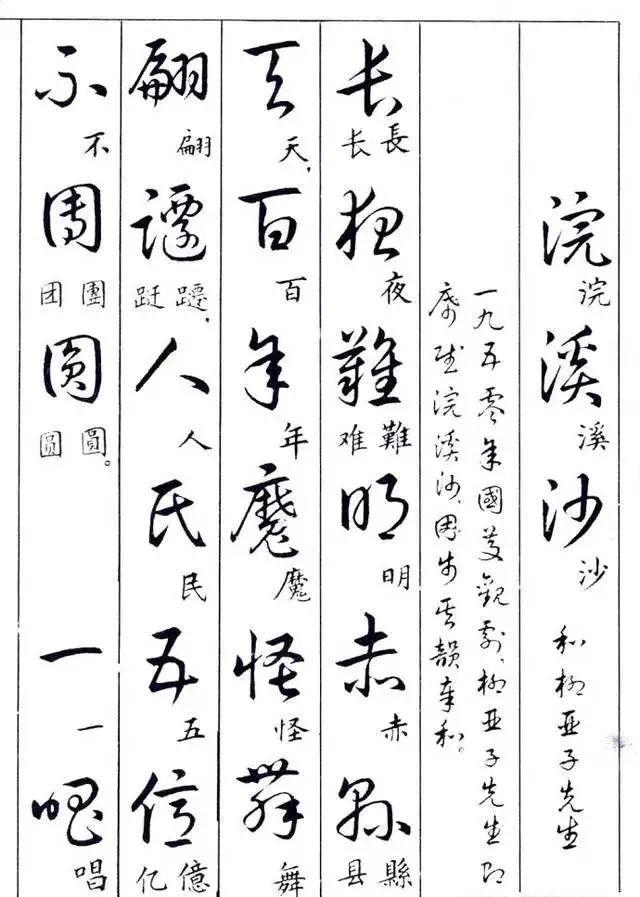 浣溪沙 和柳亞子先生
浣溪沙
一九五零年國慶觀劇,柳亞子先生即
席賦浣溪沙,因步其韻奉和。
長夜難明赤縣
長长 夜 難难 明 赤 縣县
天百年魔怪舞
天, 百 年 魔 怪 舞
翩躚人民五億
翩 躚跹, 人 民 五 億亿
不團圓 一唱
不 團团 圓圆。 一 唱